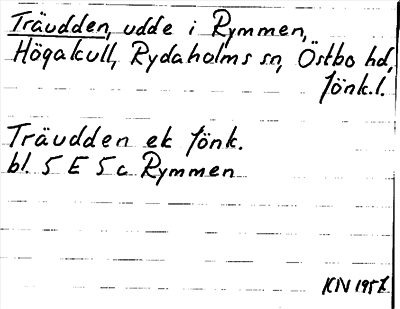 Träudden, udde i Rymmen,
Högakull, Rydaholms sn, Östbo hd,
Jönk.l.
Träudden ek Jönk.
bl. 5 E 5 c Rymmen
KN 1957.